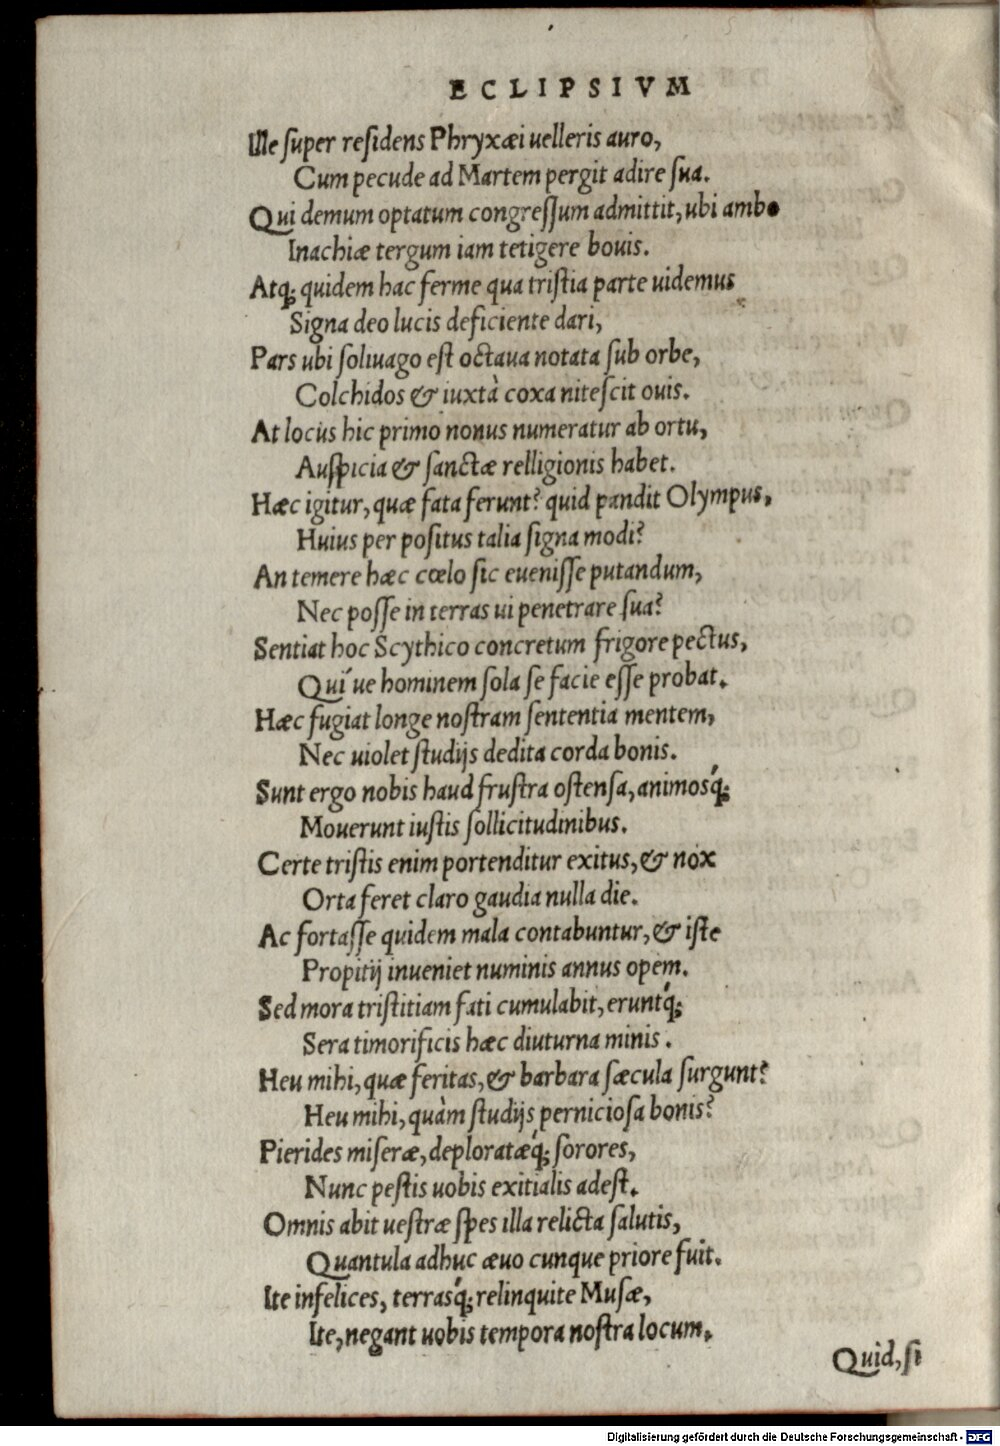 ECLIPSIVM
Ille super residens Phryxæi uelleris auro,
Cum pecude ad Martem pergit adire sua.
Qui demum optatum congressum admittit, ubi ambo
Inachiæ tergum iam tetigere bouis.
Atq; quidem hac ferme qua tristia parte uidemus
Signa deo lucis deficiente dari,
Pars ubi soliuago est octaua notata sub orbe,
Colchidos & iuxtà coxa nitescit ouis.
At locus hic primo nonus numeratur ab ortu,
Auspicia & sanctæ relligionis habet.
Hæc igitur, quæ fata ferunt? quid pandit Olympus,
Huius per positus talia signa modi?
An temere hæc cœlo sic euenisse putandum,
Nec posse in terras ui penetrare sua?
Sentiat hoc Scythico concretum frigore pectus,
Qui´ue hominem sola se facie esse probat.
Hæc fugiat longe nostram sententia mentem,
Nec uiolet studijs dedita corda bonis.
Sunt ergo nobis haud frustra ostensa, animosq́;
Mouerunt iustis sollicitudinibus.
Certe tristis enim portenditur exitus, & nox
Orta feret claro gaudia nulla die.
Ac fortasse quidem mala contabuntur, & iste
Propitij inueniet numinis annus opem.
Sed mora tristitiam fati cumulabit, eruntq́;
Sera timorificis hæc diuturna minis.
Heu mihi, quæ feritas, & barbara sæcula surgunt?
Heu mihi, quàm studijs perniciosa bonis?
Pierides miseræ, deploratæq́; sorores,
Nunc pestis uobis exitialis adest.
Omnis abit uestræ spes illa relicta salutis,
Quantula adhuc æuo cunque priore fuit.
Ite infelices, terrasq́; relinquite Musæ,
Ite, negant uobis tempora nostra locum.
Quid, si
Digitalisierung gefördert durch die Deutsche Forschungsgemeinschaft - DFG